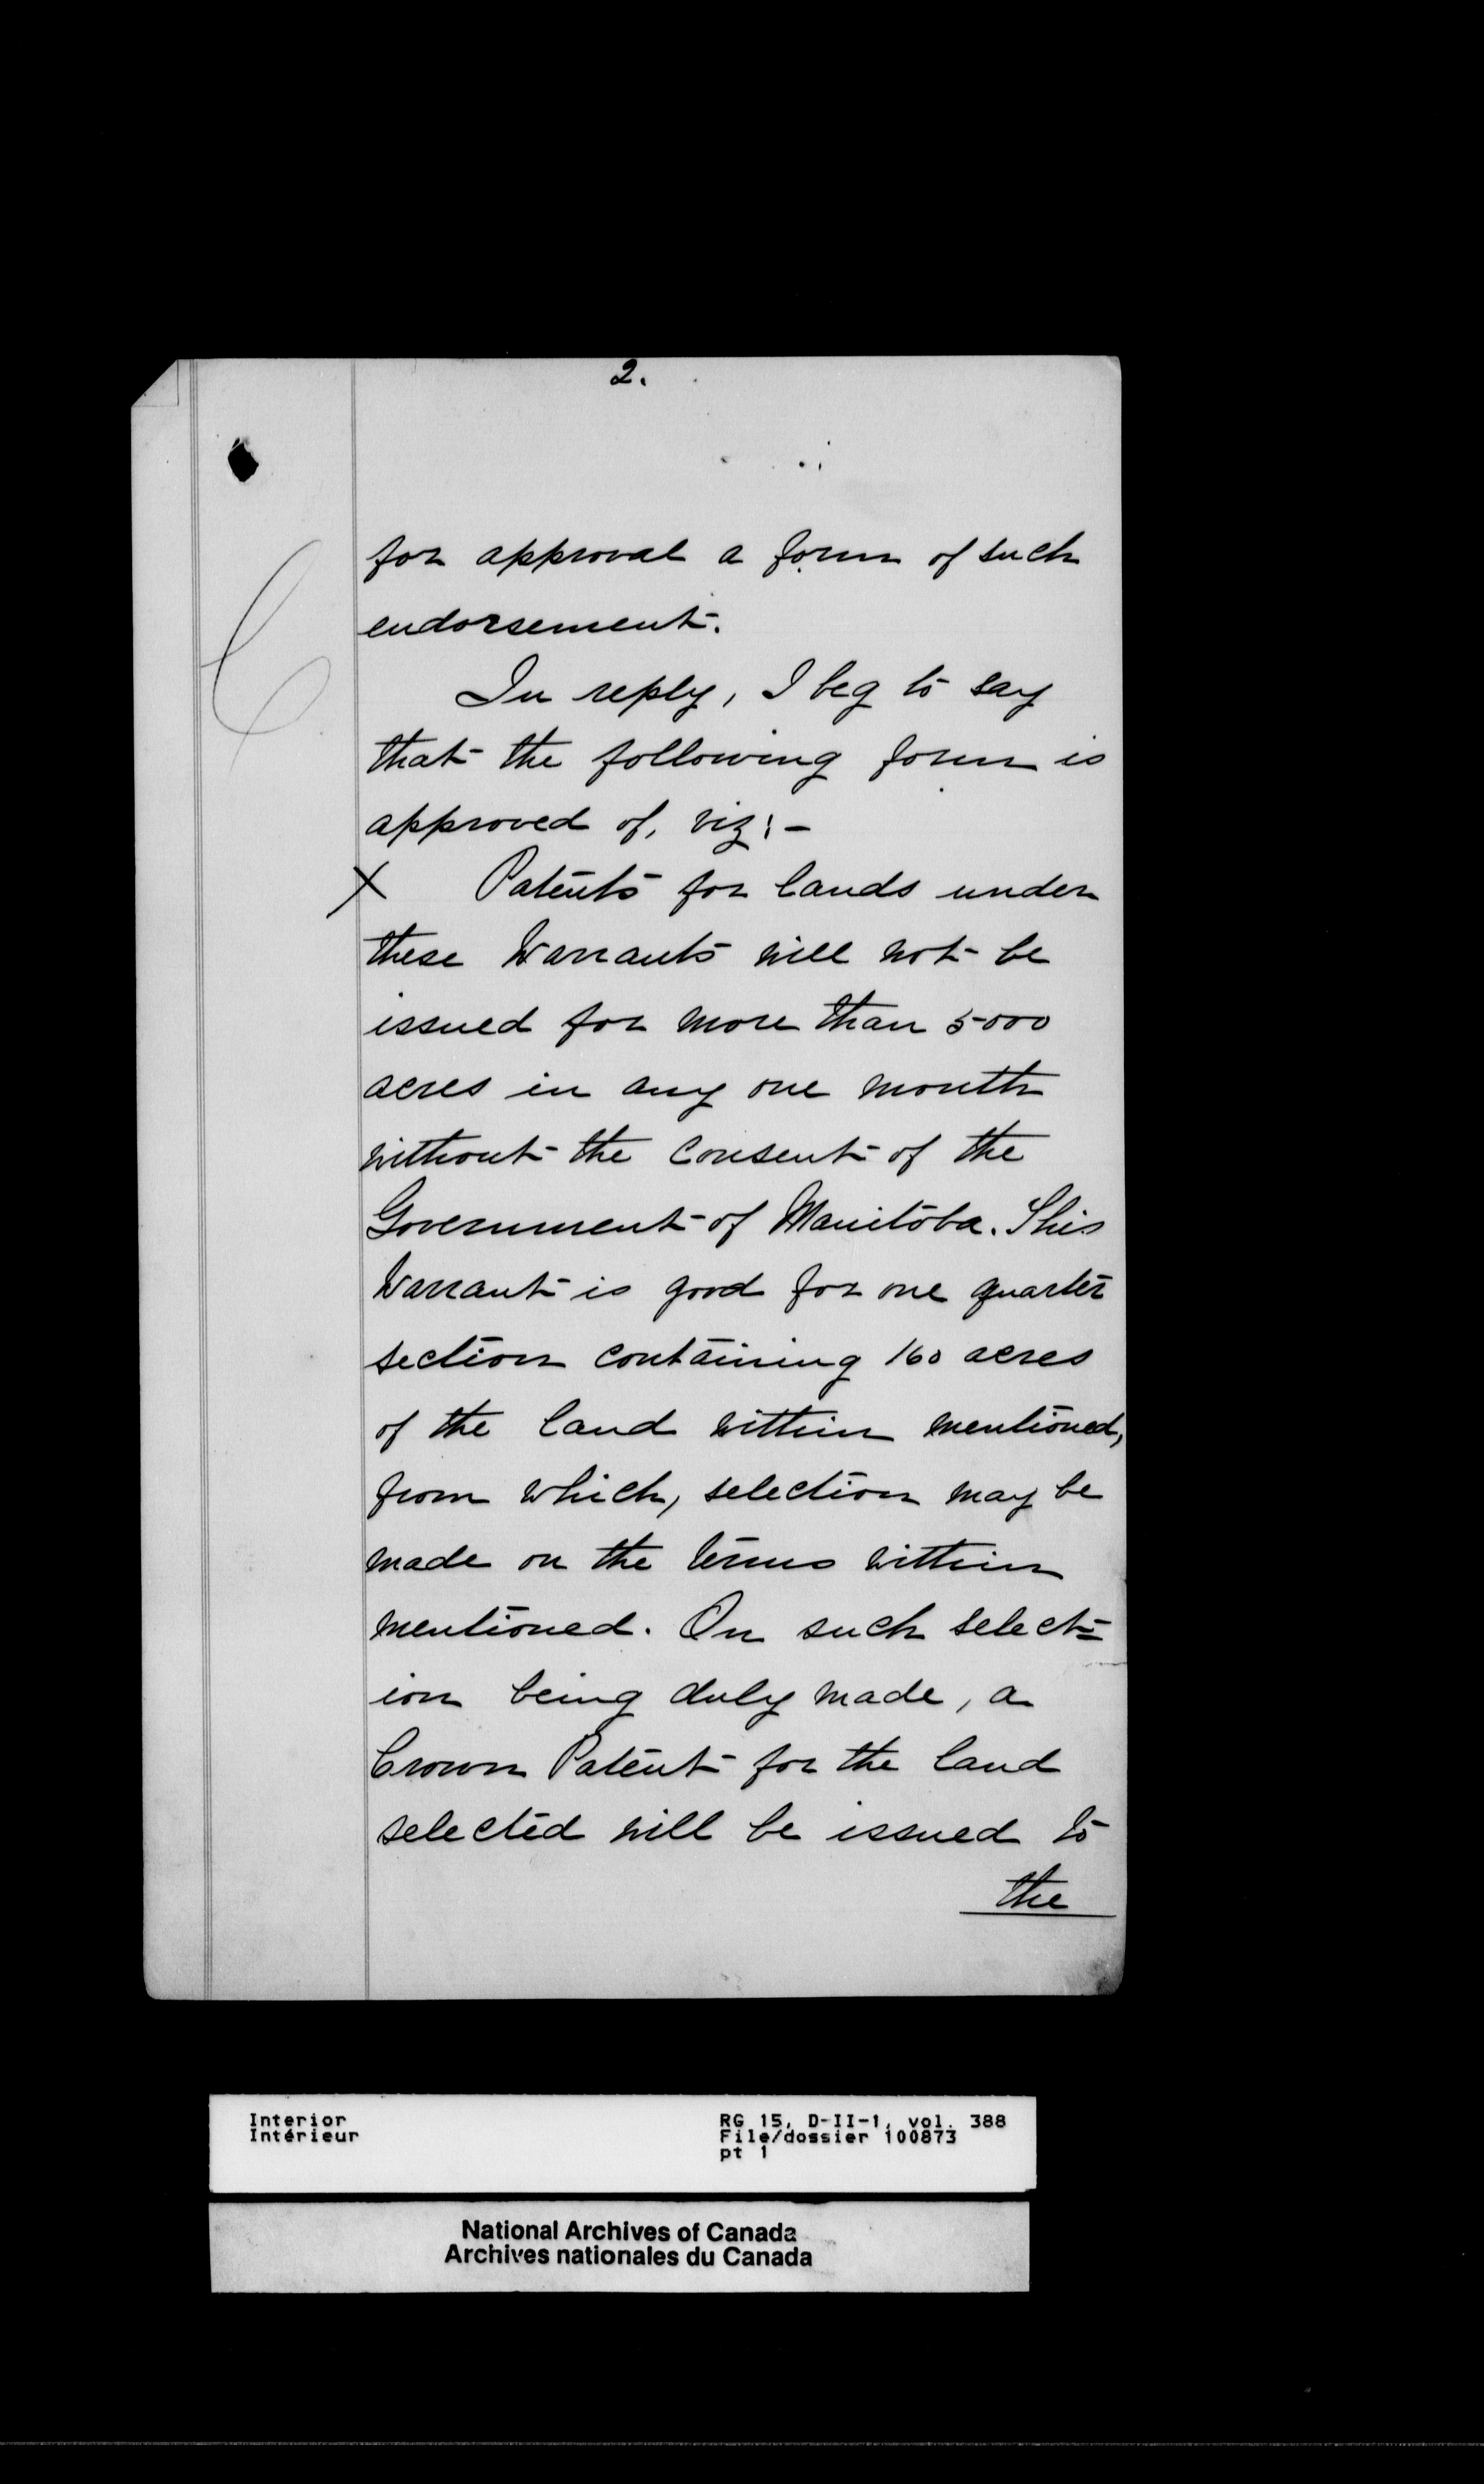 2.
for approval a form of such
endorsement.
In reply, I beg to say
that the following form is
approved of, viz:-
X Patents for lands under
these Warrants will not be
issued for more than 5000
acres in any one month
without the consent of the
Government of Manitoba. This
Warrant is good for one quarter
section containing 160 acres
of the land within mentioned,
from which, selection may be
made on the terms within
mentioned. On such select=
ion being duly made, a
Crown Patent for the land
selected will be issued to
the
Interior
Intérieur
RG 15, D-II-1, vol. 388
File/dossier 100873
pt 1
National Archives of Canada
Archives nationales du Canada